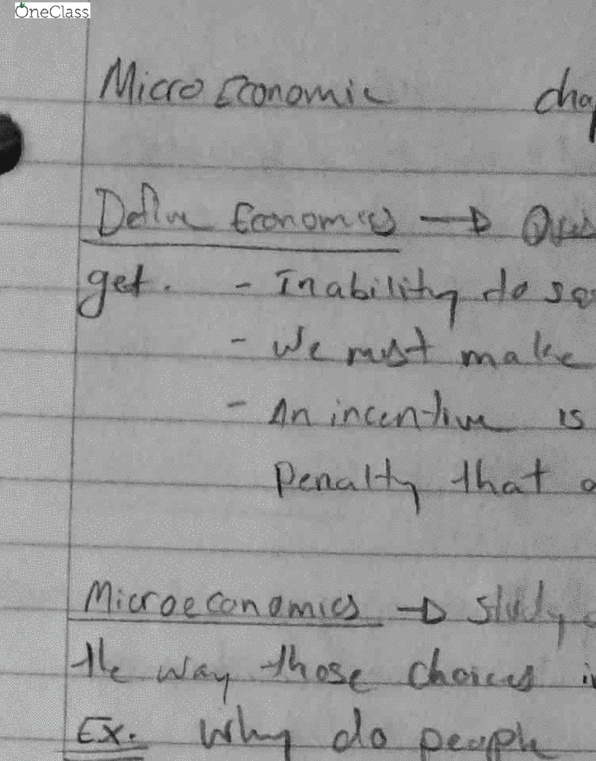 OneClass
Micro Economic
Define Economics →
get. - Inability to
- We must make
- An incentive is
Penalty that
Microeconomics → study
the way those choices
Ex. Why do people